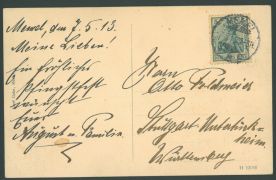 Memel, den 7.5.13.
Meine Lieben!
Ein fröhliches
Pfingstfest
wünscht
Euch
August u. Familie.
Herrn
Otto
Stuttgart Untertürk-
heim
Württemberg